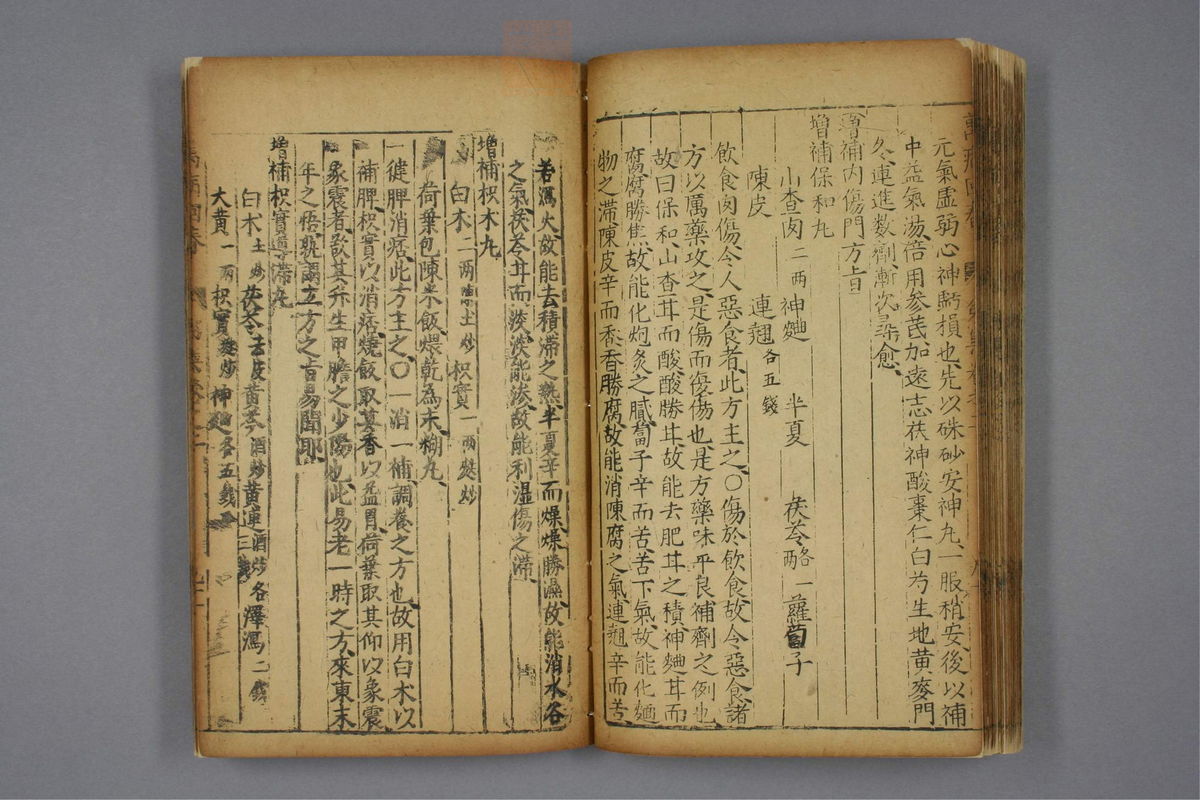 元氣虛弱心神虧損也先以硃砂安神丸一服稍安後以補
中益氣湯倍用參芪加遠志茯神酸棗仁白芍生地黃麥門
冬連進數劑漸次尋愈
增補內傷門方旨
增補保和丸
山查肉二兩 神麯 半夏 茯苓各一兩 蘿蔔子
陳皮 連翹各五錢
飲食內傷令人惡食者此方主之〇傷於飲食故令惡食諸
方以厲藥攻之是傷而復傷也是方藥味平良補劑之例也
故曰保和山查甘而酸酸勝甘故能去肥甘之積神麯甘而
腐腐勝焦故能化炮炙之膩蔔子辛而苦苦下氣故能化麵
物之滯陳皮辛而香香勝腐故能消陳腐之氣連翹辛而苦
苦瀉火故能去積滯之熱半夏辛而燥燥勝濕故能消水谷
之氣茯苓甘而淡淡能滲故能利濕傷之滯
增補枳朮丸
白朮二兩陳土炒 枳實一兩麩炒
荷葉包陳米飯煨乾為末糊丸
一健脾消痞此方主之〇一消一補調養之方也故用白朮以
補脾枳實以消痞燒飯取其香以益胃荷葉取其仰以象震
象震者欲其升生甲膽之少陽也此易老一時之方來東末
年之悟孰謂立方之旨易聞耶
增補枳實導滯丸
白朮土炒 茯苓去皮 黃芩酒炒 黃連酒炒各三錢 澤瀉二錢
大黃一兩 枳實麩炒 神麯各五錢